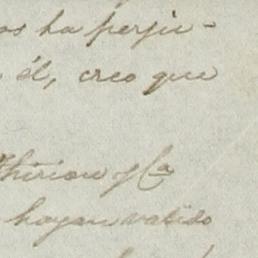 os ha perjui-
él, creo que
Thirion y Ca
hayan valido